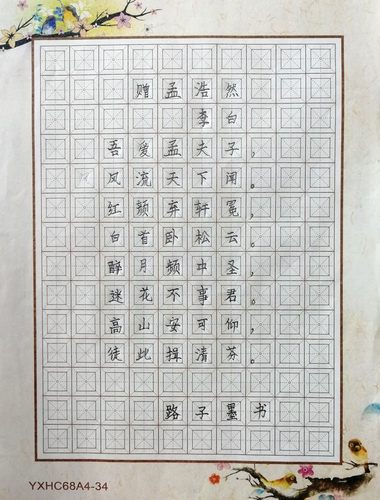 赠孟浩然
李白
吾爱孟夫子，
风流天下闻。
红颜弃轩冕，
白首卧松云。
醉月频中圣，
迷花不事君。
高山安可仰，
徒此揖清芬。
路子墨书
YXHC68A4-34